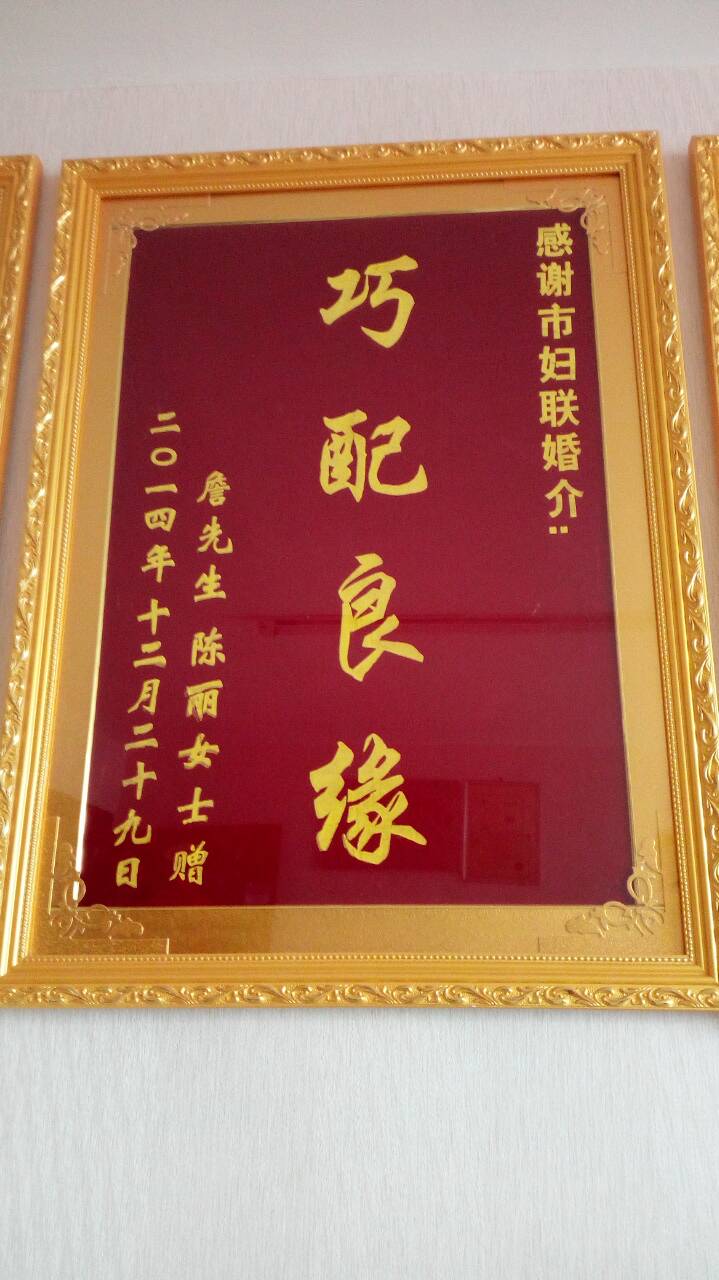 感谢市妇联婚介:
巧配良缘
詹先生 陈丽女士赠
二〇一四年十二月二十九日